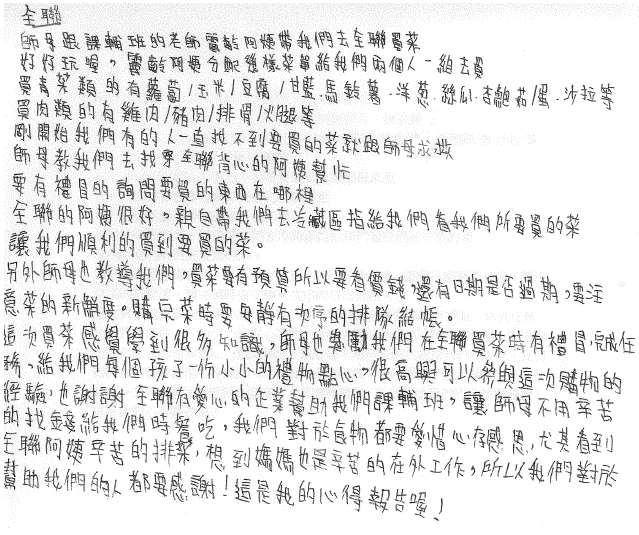 全聯
師母跟課輔班的老師雷齡阿姨帶我們去全聯買菜
好好玩喔,雷齡阿姨分配幾樣菜單給我們兩個人一組去買
買青菜類的有蘿蔔/玉米/豆腐/甘藍.馬鈴薯.洋蔥.絲瓜.杏鮑菇/蛋.沙拉等
買肉類的有雞肉/豬肉/排骨/火腿等
剛開始我們有的人一直找不到要買的菜就跟師母求救
師母教我們去找穿全聯背心的阿姨幫忙
要有禮貌的詢問要買的東西在哪裡
全聯的阿姨很好。親自帶我們去冷藏區指給我們看我們所要買的菜
讓我們順利的買到要買的菜。
另外師母也教導我們,買菜要有預算所以要看價錢,還有日期是否過期,要注
意菜的新鮮度。購完菜時要安靜有次序的排隊結帳。
這次買菜感覺學到很多知識,師母也獎勵我們在全聯買菜時有禮貌,完成任
務,給我們每個孩子一份小小的禮物點心。很高興可以參與這次購物的
經驗,也謝謝全聯有愛心的企業幫助我們課輔班,讓師母不用辛苦
的找錢給我們時餐吃,我們對於食物都要愛惜心存感恩,尤其看到
全聯阿姨辛苦的排菜,想到媽媽也是辛苦的在外工作,所以我們對於
幫助我們的人都要感謝!這是我的心得報告喔!